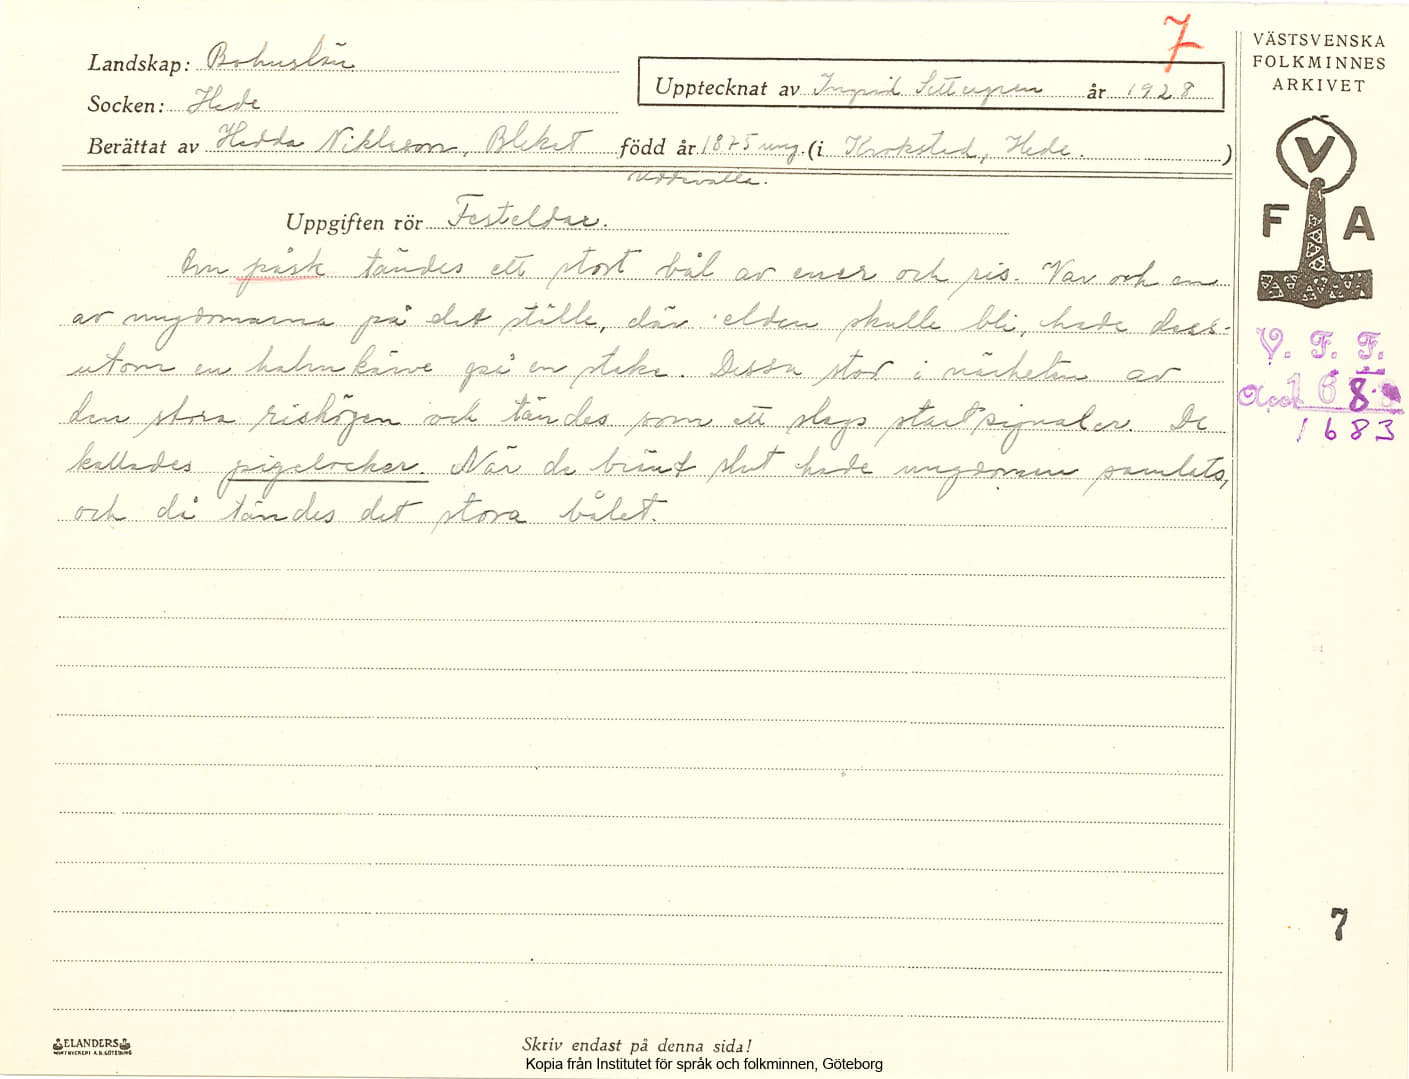 7
Landskap: Bohuslän
Socken: Hede
Upptecknat av Ingrid Settergren år 1928
Berättat av Hedda Niklasson, Blekét född år 1875 ung. (i Krokstad, Hede. )
Uddevalla.
Uppgiften rör Festeldar.
Om påsk tändes ett stort bål av ener och ris. Var och en
av ungdomarna på det ställe, där elden skulle bli, hade dess-
utom en halmkärve på en stake. Dessa stod i närheten av
den stora rishögen och tändes som ett slags startsignaler. De
kallades pigelocker. När de bränt slut hade ungdomen samlats,
och då tändes det stora bålet.
VÄSTSVENSKA
FOLKMINNES
ARKIVET
V
F A
V. F. F.
Acc. 168
1683
7
ELANDERS
BOKTRYCKERI A.B. GÖTEBORG
Skriv endast på denna sida!
Kopia från Institutet för språk och folkminnen, Göteborg